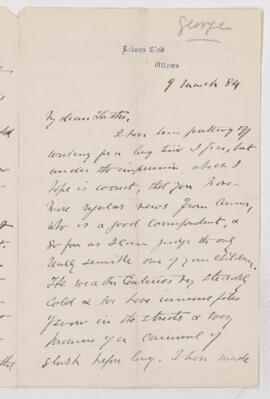 George
Rideau Club
Ottawa
9 March 84
My dear Father,
I have been putting off
writing for a long time I fear, but
under the impression which I
hope is correct, that you have
more regular news from Anna,
who is a good correspondent, &
so far as I can judge the only
really sensible one of your children.
The weather continues very steadily
cold & we have immense piles
of snow in the streets & every
promise of a carnival of
slush before long. I have made